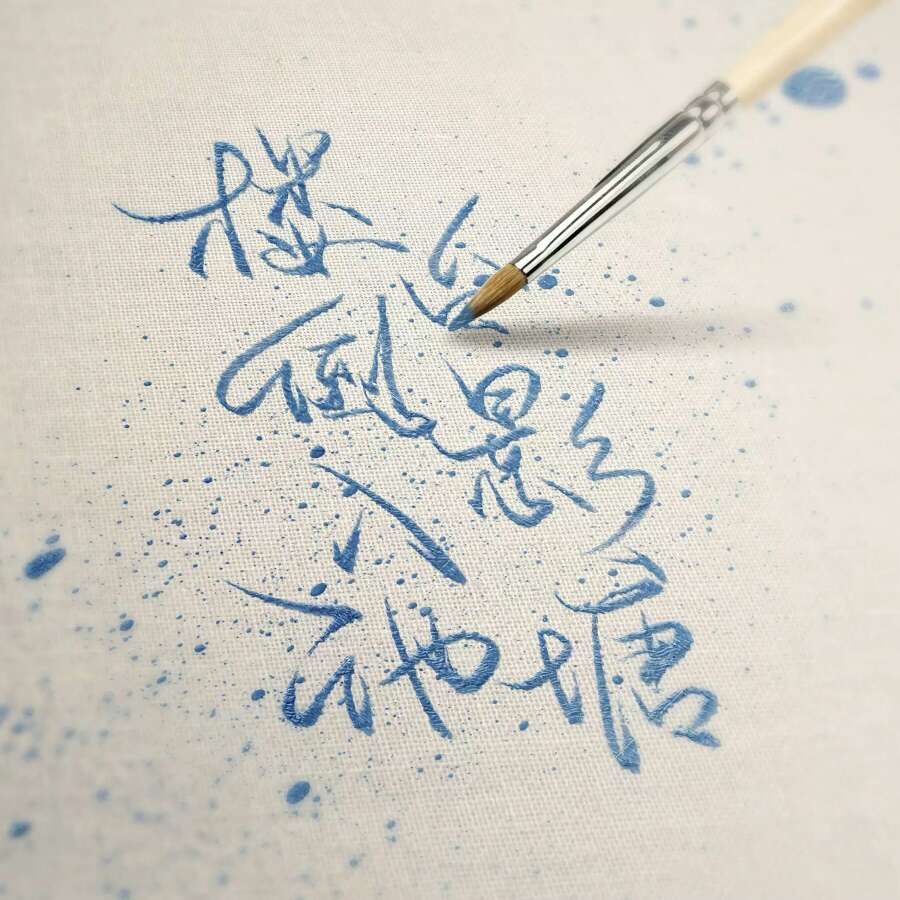 楼台
倒影
入
池塘